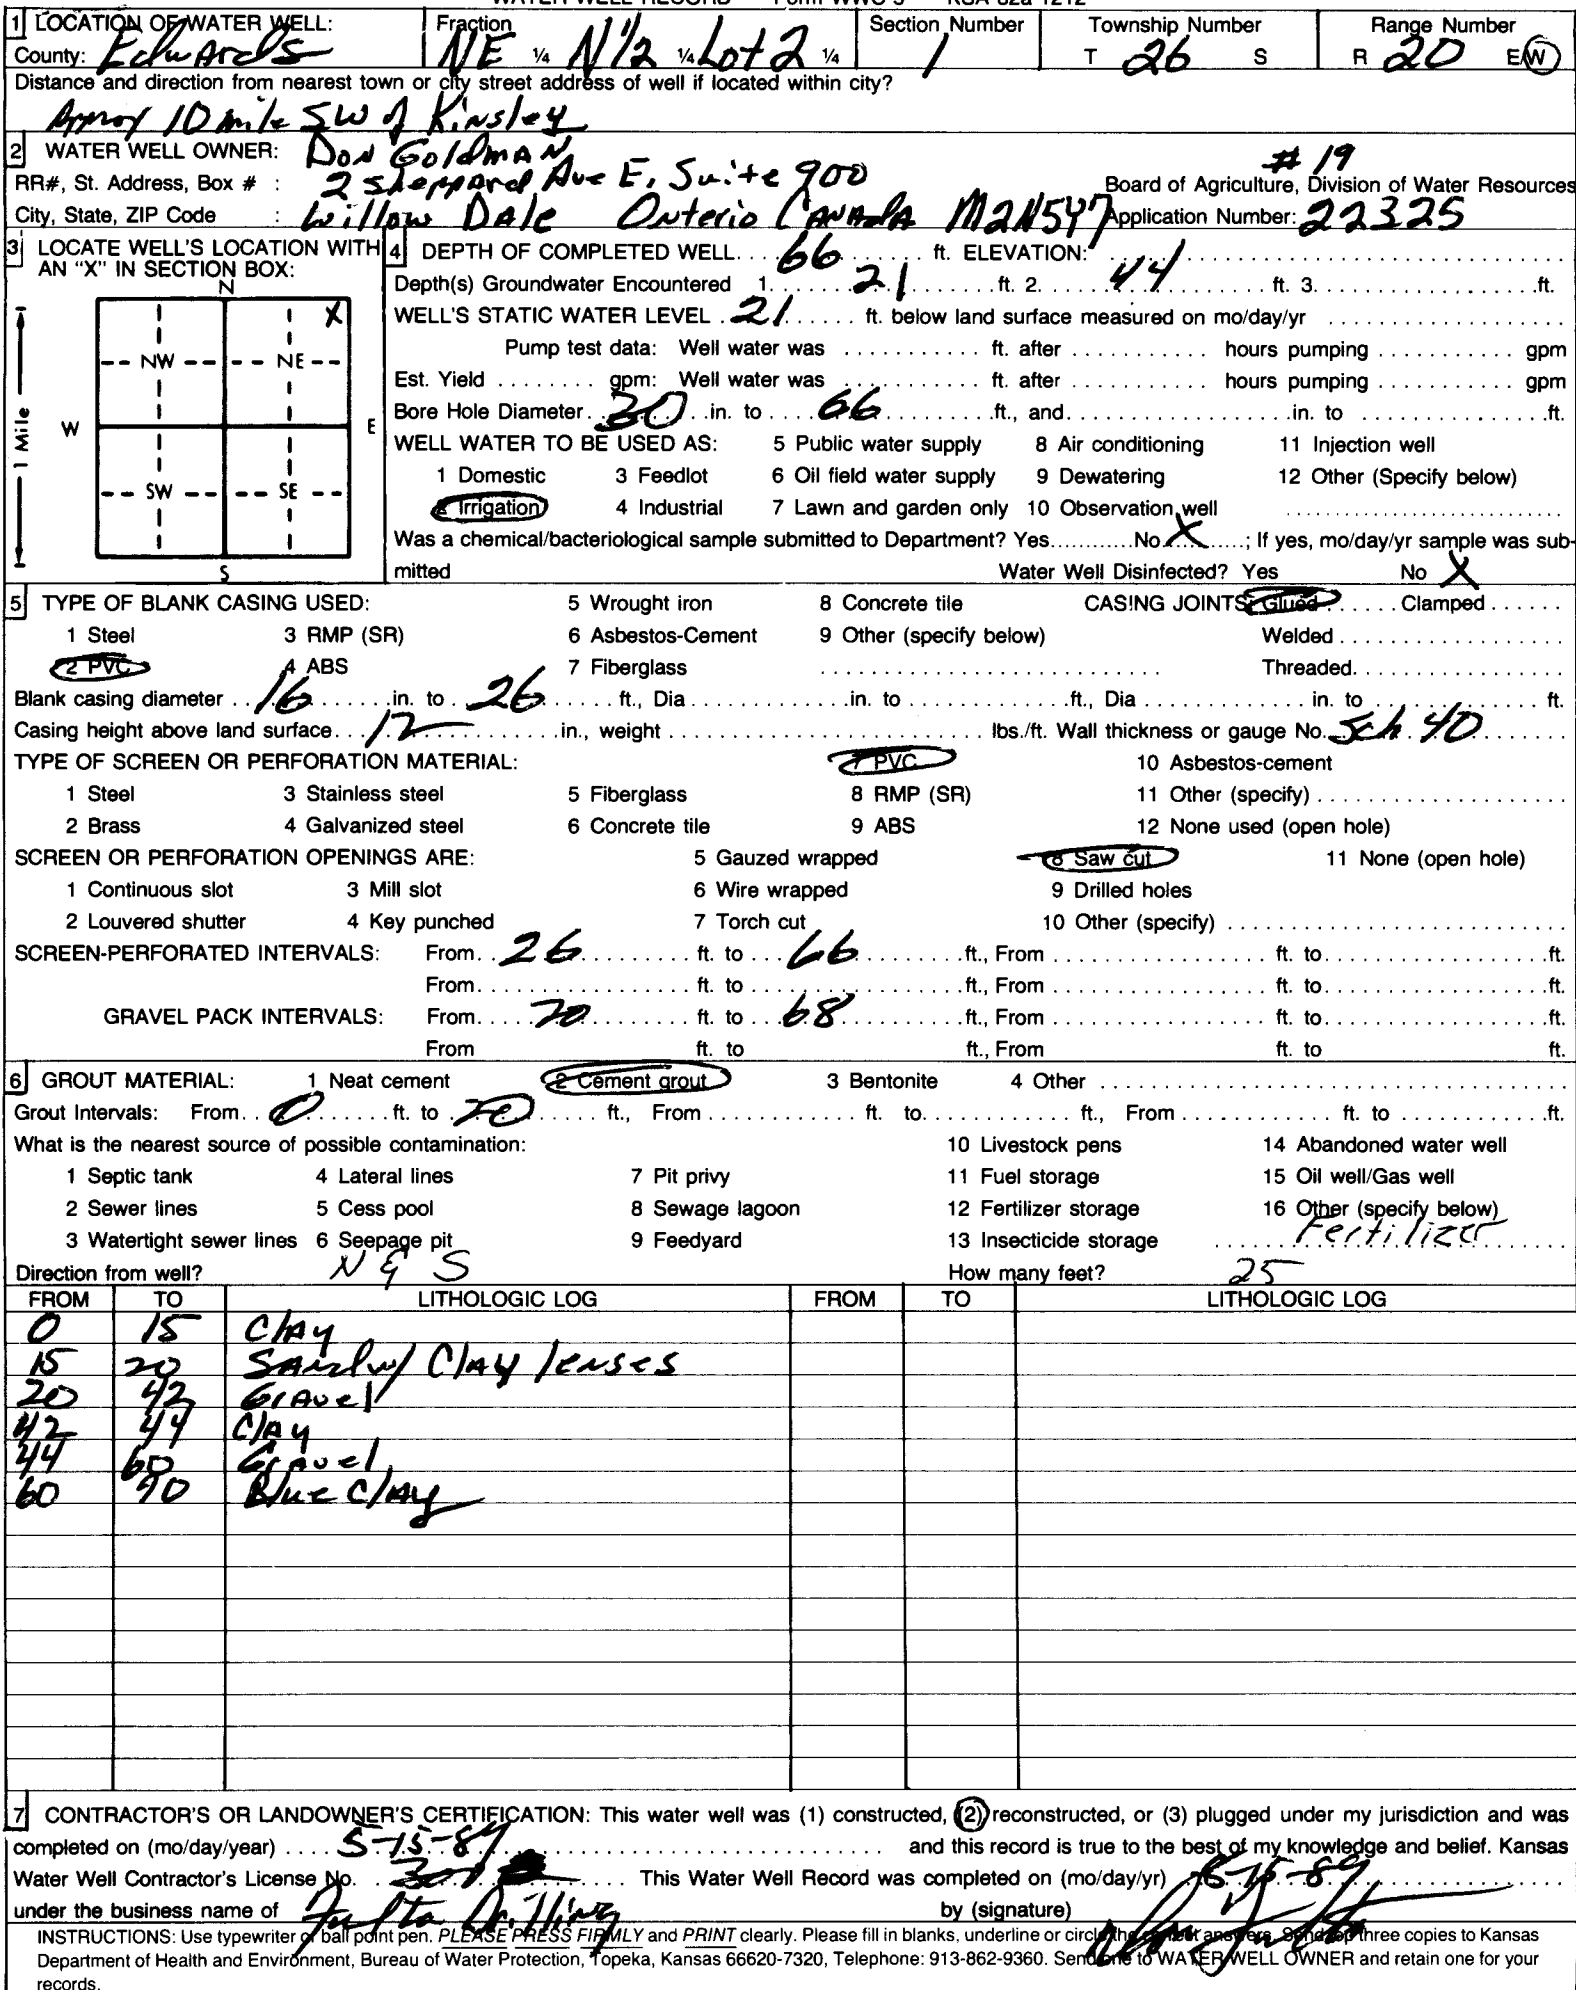 WATER WELL RECORD Form WWC-5 KSA 82a-1212
1 LOCATION OF WATER WELL: Fraction Section Number Township Number Range Number
County: Edwards NE ¼ N1/2 ¼ Lot 2 ¼ 1 T 26 S R 20 E/W
Distance and direction from nearest town or city street address of well if located within city?
Approx 10 mile SW of Kinsley
2 WATER WELL OWNER: Don Goldman #19
RR#, St. Address, Box # : 2 Sheppard Ave E, Suite 900 Board of Agriculture, Division of Water Resources
City, State, ZIP Code : Willow Dale Onterio Canada M2N5Y7 Application Number: 22325
3 LOCATE WELL'S LOCATION WITH AN "X" IN SECTION BOX:
N
X
NW NE
W E
SW SE
S
1 Mile
4 DEPTH OF COMPLETED WELL. 66 ft. ELEVATION:
Depth(s) Groundwater Encountered 1. 21 ft. 2. 44 ft. 3. ft.
WELL'S STATIC WATER LEVEL 21 ft. below land surface measured on mo/day/yr
Pump test data: Well water was ft. after hours pumping gpm
Est. Yield gpm: Well water was ft. after hours pumping gpm
Bore Hole Diameter 30 in. to 66 ft., and in. to ft.
WELL WATER TO BE USED AS: 5 Public water supply 8 Air conditioning 11 Injection well
1 Domestic 3 Feedlot 6 Oil field water supply 9 Dewatering 12 Other (Specify below)
2 Irrigation 4 Industrial 7 Lawn and garden only 10 Observation well
Was a chemical/bacteriological sample submitted to Department? Yes No X ; If yes, mo/day/yr sample was sub-
mitted Water Well Disinfected? Yes No X
5 TYPE OF BLANK CASING USED: 5 Wrought iron 8 Concrete tile CASING JOINTS: Glued Clamped
1 Steel 3 RMP (SR) 6 Asbestos-Cement 9 Other (specify below) Welded
2 PVC 4 ABS 7 Fiberglass Threaded
Blank casing diameter 16 in. to 26 ft., Dia in. to ft., Dia in. to ft.
Casing height above land surface 12 in., weight lbs./ft. Wall thickness or gauge No. Sch 40
TYPE OF SCREEN OR PERFORATION MATERIAL: 7 PVC 10 Asbestos-cement
1 Steel 3 Stainless steel 5 Fiberglass 8 RMP (SR) 11 Other (specify)
2 Brass 4 Galvanized steel 6 Concrete tile 9 ABS 12 None used (open hole)
SCREEN OR PERFORATION OPENINGS ARE: 5 Gauzed wrapped 8 Saw cut 11 None (open hole)
1 Continuous slot 3 Mill slot 6 Wire wrapped 9 Drilled holes
2 Louvered shutter 4 Key punched 7 Torch cut 10 Other (specify)
SCREEN-PERFORATED INTERVALS: From 26 ft. to 66 ft., From ft. to ft.
From ft. to ft., From ft. to ft.
GRAVEL PACK INTERVALS: From 20 ft. to 68 ft., From ft. to ft.
From ft. to ft., From ft. to ft.
6 GROUT MATERIAL: 1 Neat cement 2 Cement grout 3 Bentonite 4 Other
Grout Intervals: From 0 ft. to 20 ft., From ft. to ft., From ft. to ft.
What is the nearest source of possible contamination: 10 Livestock pens 14 Abandoned water well
1 Septic tank 4 Lateral lines 7 Pit privy 11 Fuel storage 15 Oil well/Gas well
2 Sewer lines 5 Cess pool 8 Sewage lagoon 12 Fertilizer storage 16 Other (specify below)
3 Watertight sewer lines 6 Seepage pit 9 Feedyard 13 Insecticide storage Fertilizer
Direction from well? N & S How many feet? 25
FROM TO LITHOLOGIC LOG FROM TO LITHOLOGIC LOG
0 15 Clay
15 20 Sand w/ Clay lenses
20 42 Gravel
42 44 Clay
44 60 Gravel
60 90 Blue Clay
7 CONTRACTOR'S OR LANDOWNER'S CERTIFICATION: This water well was (1) constructed, (2) reconstructed, or (3) plugged under my jurisdiction and was
completed on (mo/day/year) 5-15-89 and this record is true to the best of my knowledge and belief. Kansas
Water Well Contractor's License No. This Water Well Record was completed on (mo/day/yr) 5-15-89
under the business name of Drilling by (signature)
INSTRUCTIONS: Use typewriter or ball point pen. PLEASE PRESS FIRMLY and PRINT clearly. Please fill in blanks, underline or circle the correct answers. Send top three copies to Kansas
Department of Health and Environment, Bureau of Water Protection, Topeka, Kansas 66620-7320, Telephone: 913-862-9360. Send one to WATER WELL OWNER and retain one for your
records.